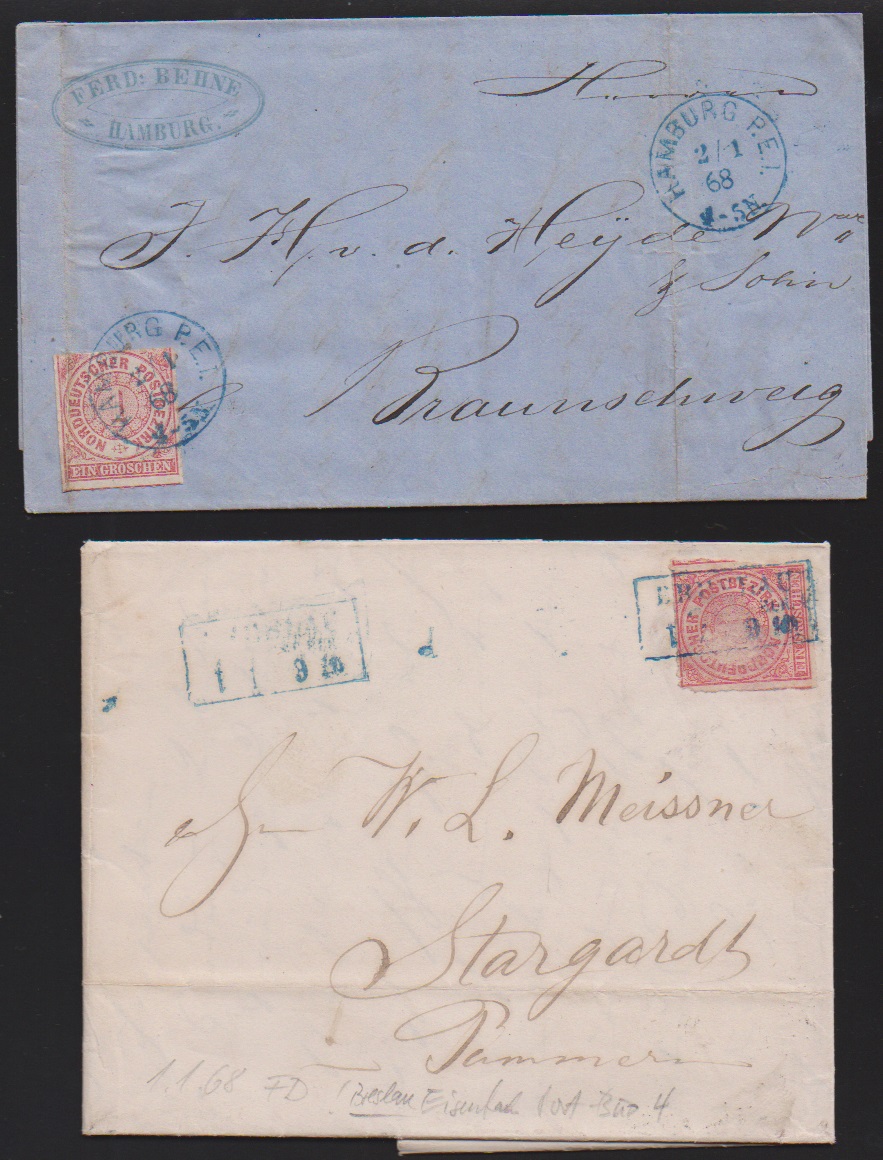 FERD: BEHNE
HAMBURG.
Herren
HAMBURG P.E.I.
2/1
68
4-5N.
J. H. v. d. Heÿde Wwe
& Sohn
Braunschweig
HAMBURG P.E.I.
2 1
68
4-5N.
NORDDEUTSCHER POSTBEZIRK
1
EIN GROSCHEN
BRESLAU
1 1 9 10
NORDDEUTSCHER POSTBEZIRK
EIN GROSCHEN
1 1 9 10
W. L. Meissner
Stargardt
Pommern
1.1.68 FD Breslau Eisenbah Post-Büo 4